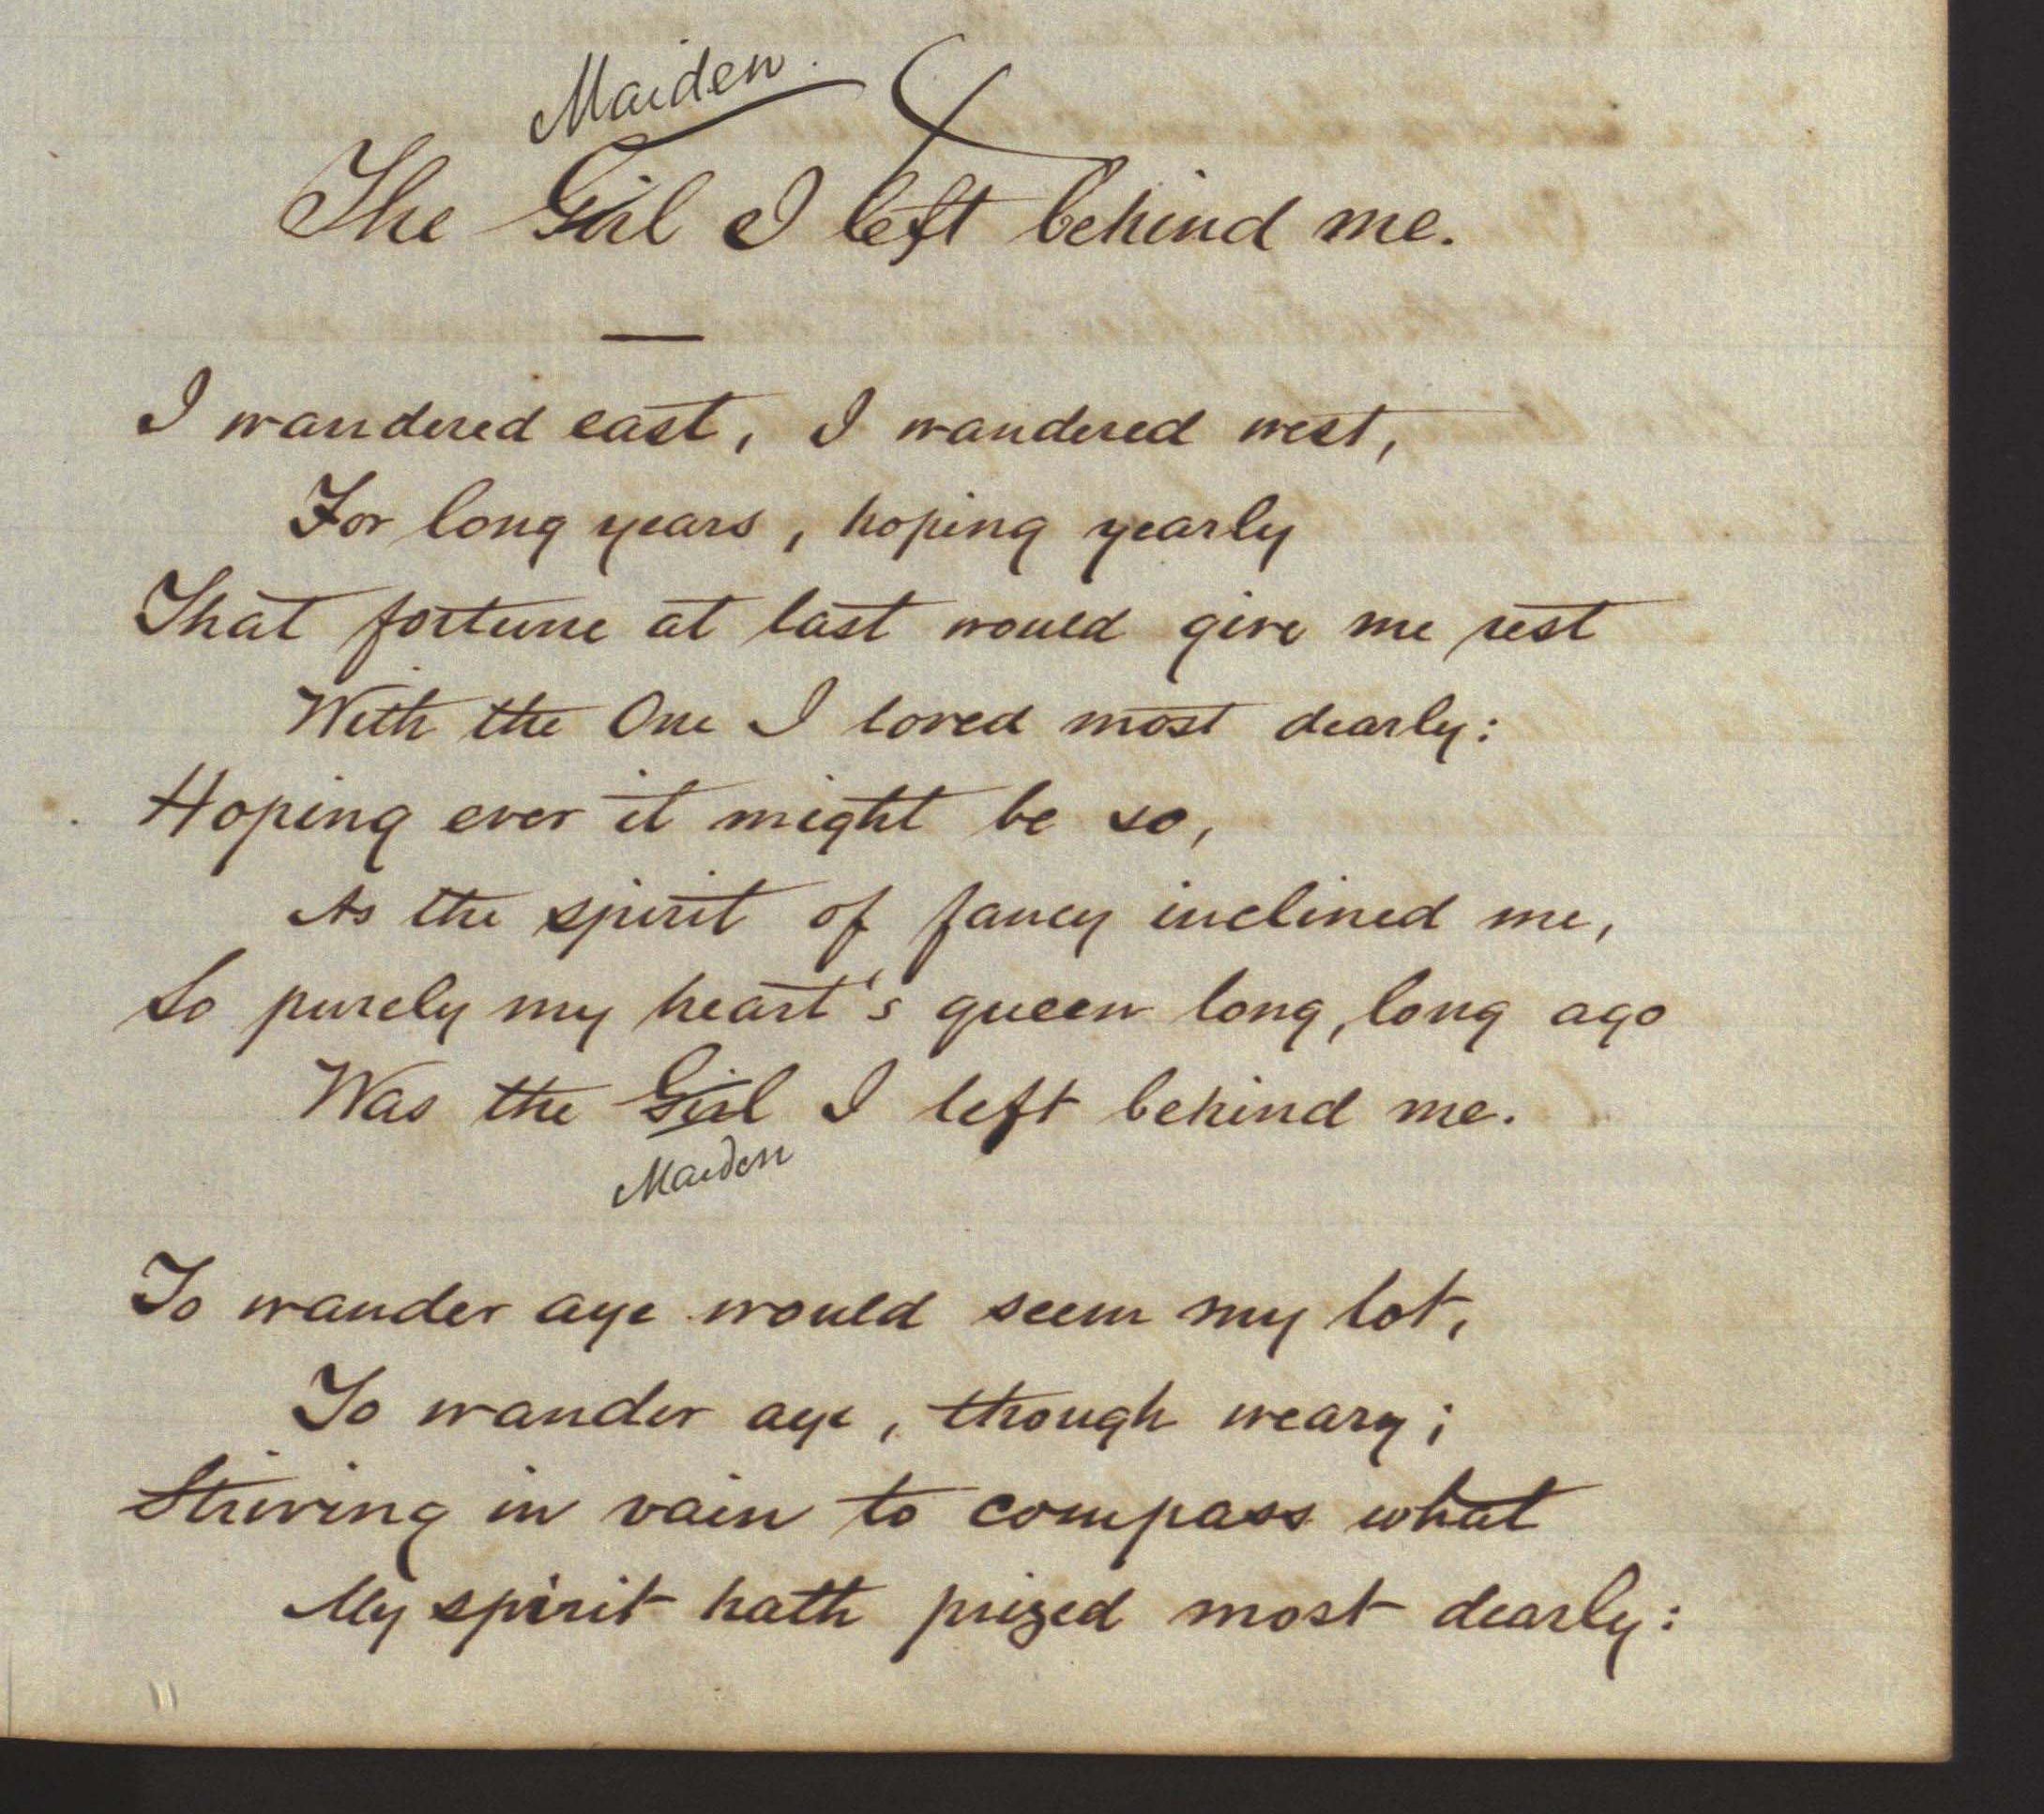 Maiden.
The Girl I left behind me.
I wandered east, I wandered west,
For long years, hoping yearly
That fortune at last would give me rest
With the One I loved most dearly:
Hoping ever it might be so,
As the spirit of fancy inclined me,
So purely my heart's queen long, long ago
Was the Girl I left behind me.
Maiden
To wander aye would seem my lot,
To wander aye, though weary;
Striving in vain to compass what
My spirit hath prized most dearly: